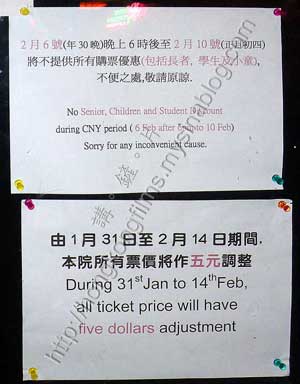 2月6號(年30晚)晚上6時後至2月10號(正月初四)
將不提供所有購票優惠(包括長者, 學生及小童),
不便之處,敬請原諒.
No Senior, Children and Student Discount
during CNY period ( 6 Feb after 6pm to 10 Feb)
Sorry for any inconvenient cause.
由1月31日至2月14日期間.
本院所有票價將作五元調整
During 31st Jan to 14th Feb,
all ticket price will have
five dollars adjustment